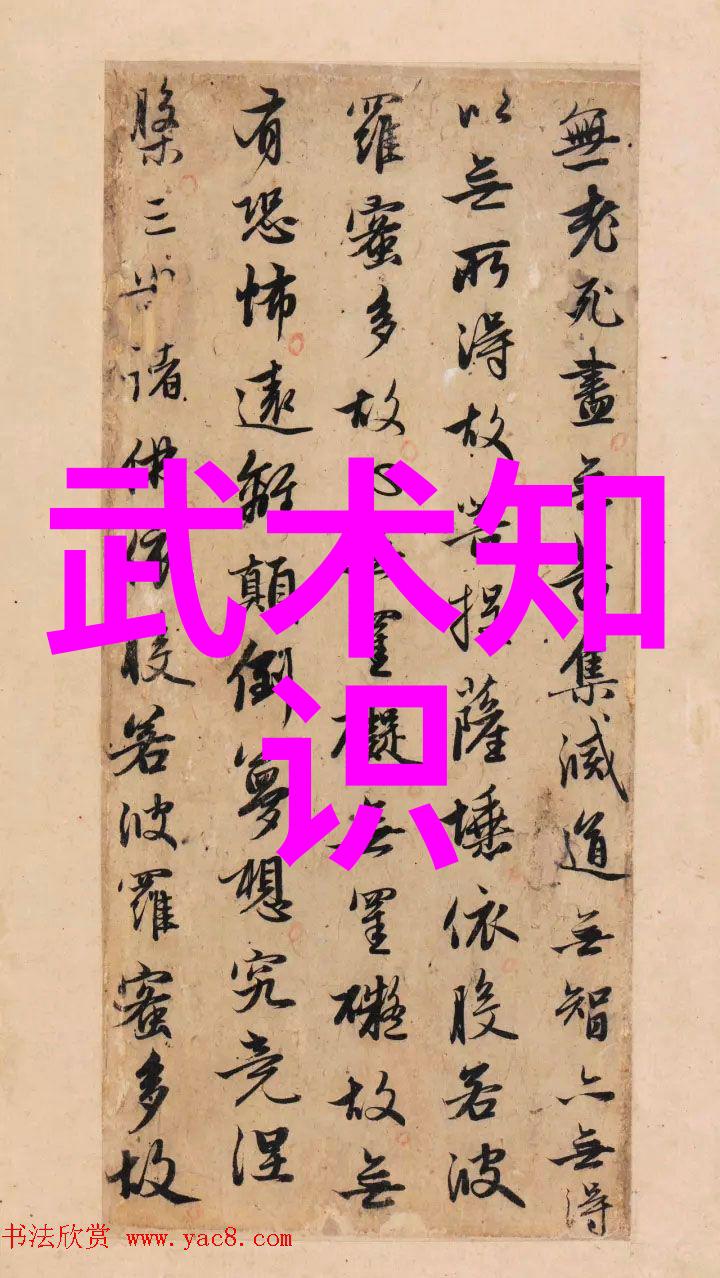 無老死盡無苦集滅道無智亦無得
以無所得故菩提薩埵依般若波
羅蜜多故心無罣礙無罣礙故無
有恐怖遠離顛倒夢想究竟涅
槃三世諸佛依般若波羅蜜多故
武术知
识
书法欣赏 www.yac8.com